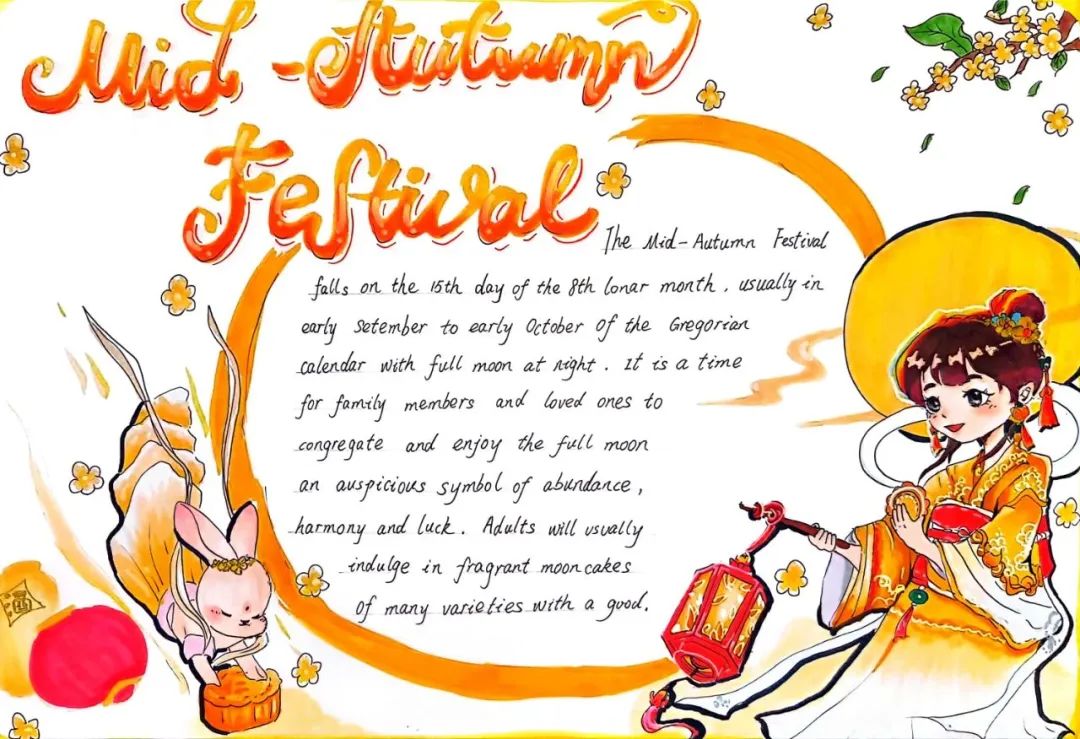 Mid-Autumn
Festival
The Mid-Autumn Festival
falls on the 15th day of the 8th lonar month, usually in
early Setember to early October of the Gregorian
calendar with full moon at night. It is a time
for family members and loved ones to
congregate and enjoy the full moon
an auspicious symbol of abundance,
harmony and luck. Adults will usually
indulge in fragrant mooncakes
of many varieties with a good.
酒